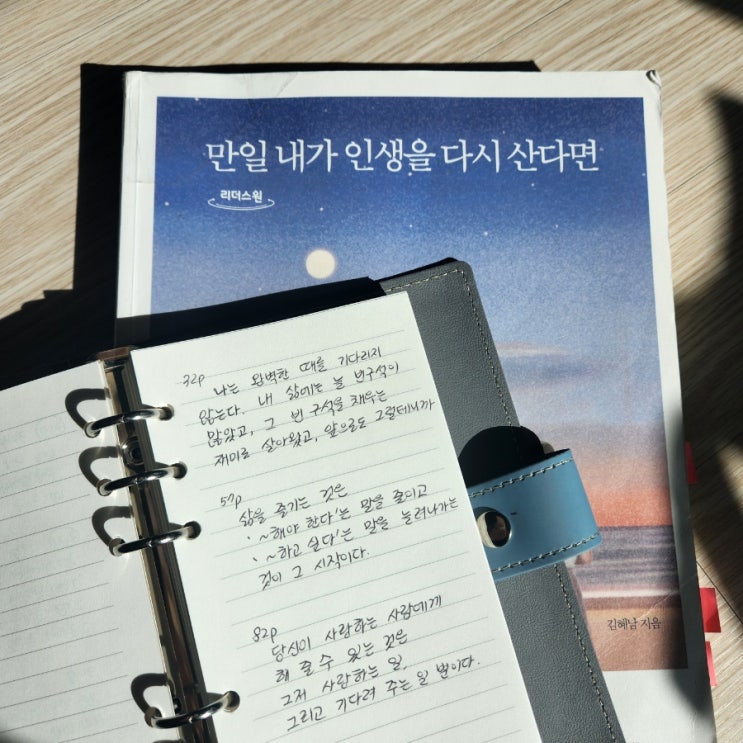 만일 내가 인생을 다시 산다면
리더스원
32p
나는 완벽한 때를 기다리지
않는다. 내 삶에는 늘 빈구석이
많았고, 그 빈 구석을 채우는
재미로 살아왔고, 앞으로도 그럴테니까
57p
삶을 즐기는 것은
'~해야 한다'는 말을 줄이고
'~하고 싶다'는 말을 늘려나가는
것이 그 시작이다.
82p
당신이 사랑하는 사람에게
해 줄 수 있는 것은
그저 사랑하는 일,
그리고 기다려 주는 일 뿐이다.
김혜남 지음